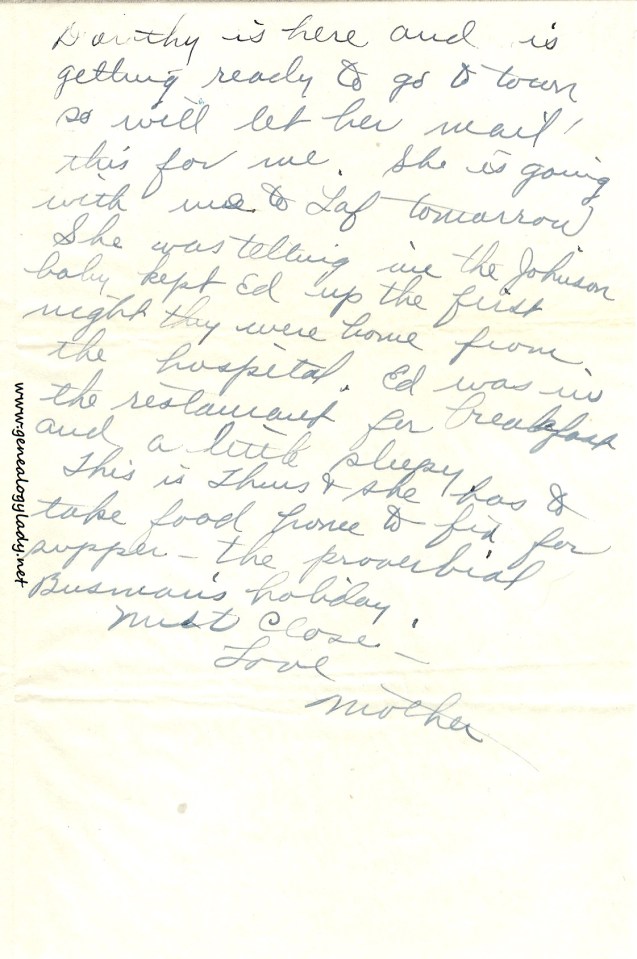 Dorthy is here and is
getting ready to go to town
so will let her mail
this for me. She is going
with me to Laf tomorrow
She was telling me the Johnson
baby kept Ed up the first
night they were home from
the hospital. Ed was in
the restaurant for breakfast
and a little sleepy.
This is Thurs & she has to
take food home to fix for
supper – the proverbial
Busman's holiday.
Must close –
Love
Mother
www.genealogylady.net